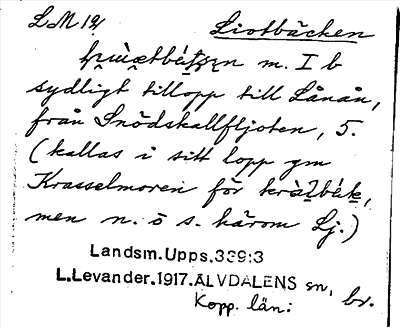 LM 12 Liotbäcken
m. I b
sydligt tillopp till Lånån,
från Snödskallfljoten, 5.
(kallas i sitt lopp gm
Krasselmoren för
men n. o s. härom Lj.)
Landsm. Upps. 339:3
L. Levander. 1917. ÄLVDALENS sn, br.
Kopp. län: